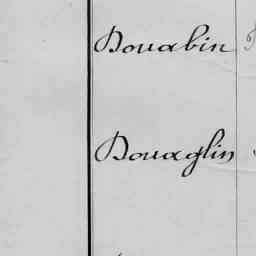 Bouabin
Bouaglin